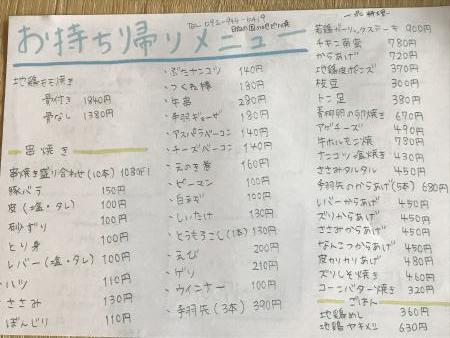 お持ち帰りメニュー
地鶏モモ焼き
骨付き 1840円
骨なし 1380円
串焼き
串焼き盛り合わせ(10本) 1080円
豚バラ 150円
皮(塩・タレ) 100円
砂ずり 100円
とり身 100円
レバー(塩・タレ) 100円
ハツ 110円
ささみ 130円
ぼんじり 110円
・ぶたナンコツ 140円
・つくね棒 180円
・牛串 280円
・手羽ギョーザ 180円
・アスパラベーコン 140円
・チーズベーコン 140円
・えのき巻 160円
・ピーマン 100円
・白ネギ 100円
・しいたけ 130円
・とうもろこし(1本) 130円
・えび 200円
・ゲソ 210円
・ウインナー 100円
・手羽先(3本) 390円
一品料理
若鶏ガーリックステーキ 900円
チキン南蛮 780円
からあげ 720円
地鶏皮ポンズ 370円
枝豆 300円
トン足 380円
670円
アゲチーズ 490円
牛ホルモン焼 780円
ナンコツ塩焼き 430円
ささみタルタル 450円
手羽先のからあげ(5本) 680円
レバーからあげ 450円
ズリからあげ 450円
ささみからあげ 450円
なんこつからあげ 450円
皮カリカリあげ 480円
ズリしそ焼き 460円
コーンバター焼き 320円
ごはん
地鶏めし 360円
地鶏ヤキメシ 630円